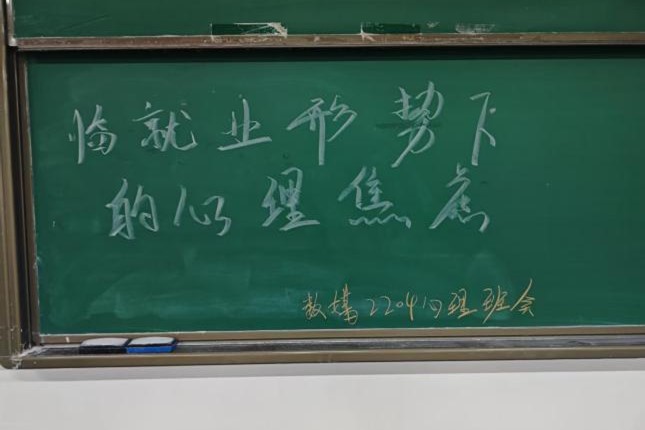 临就业形势下
的心理焦虑
数媒2204心理班会